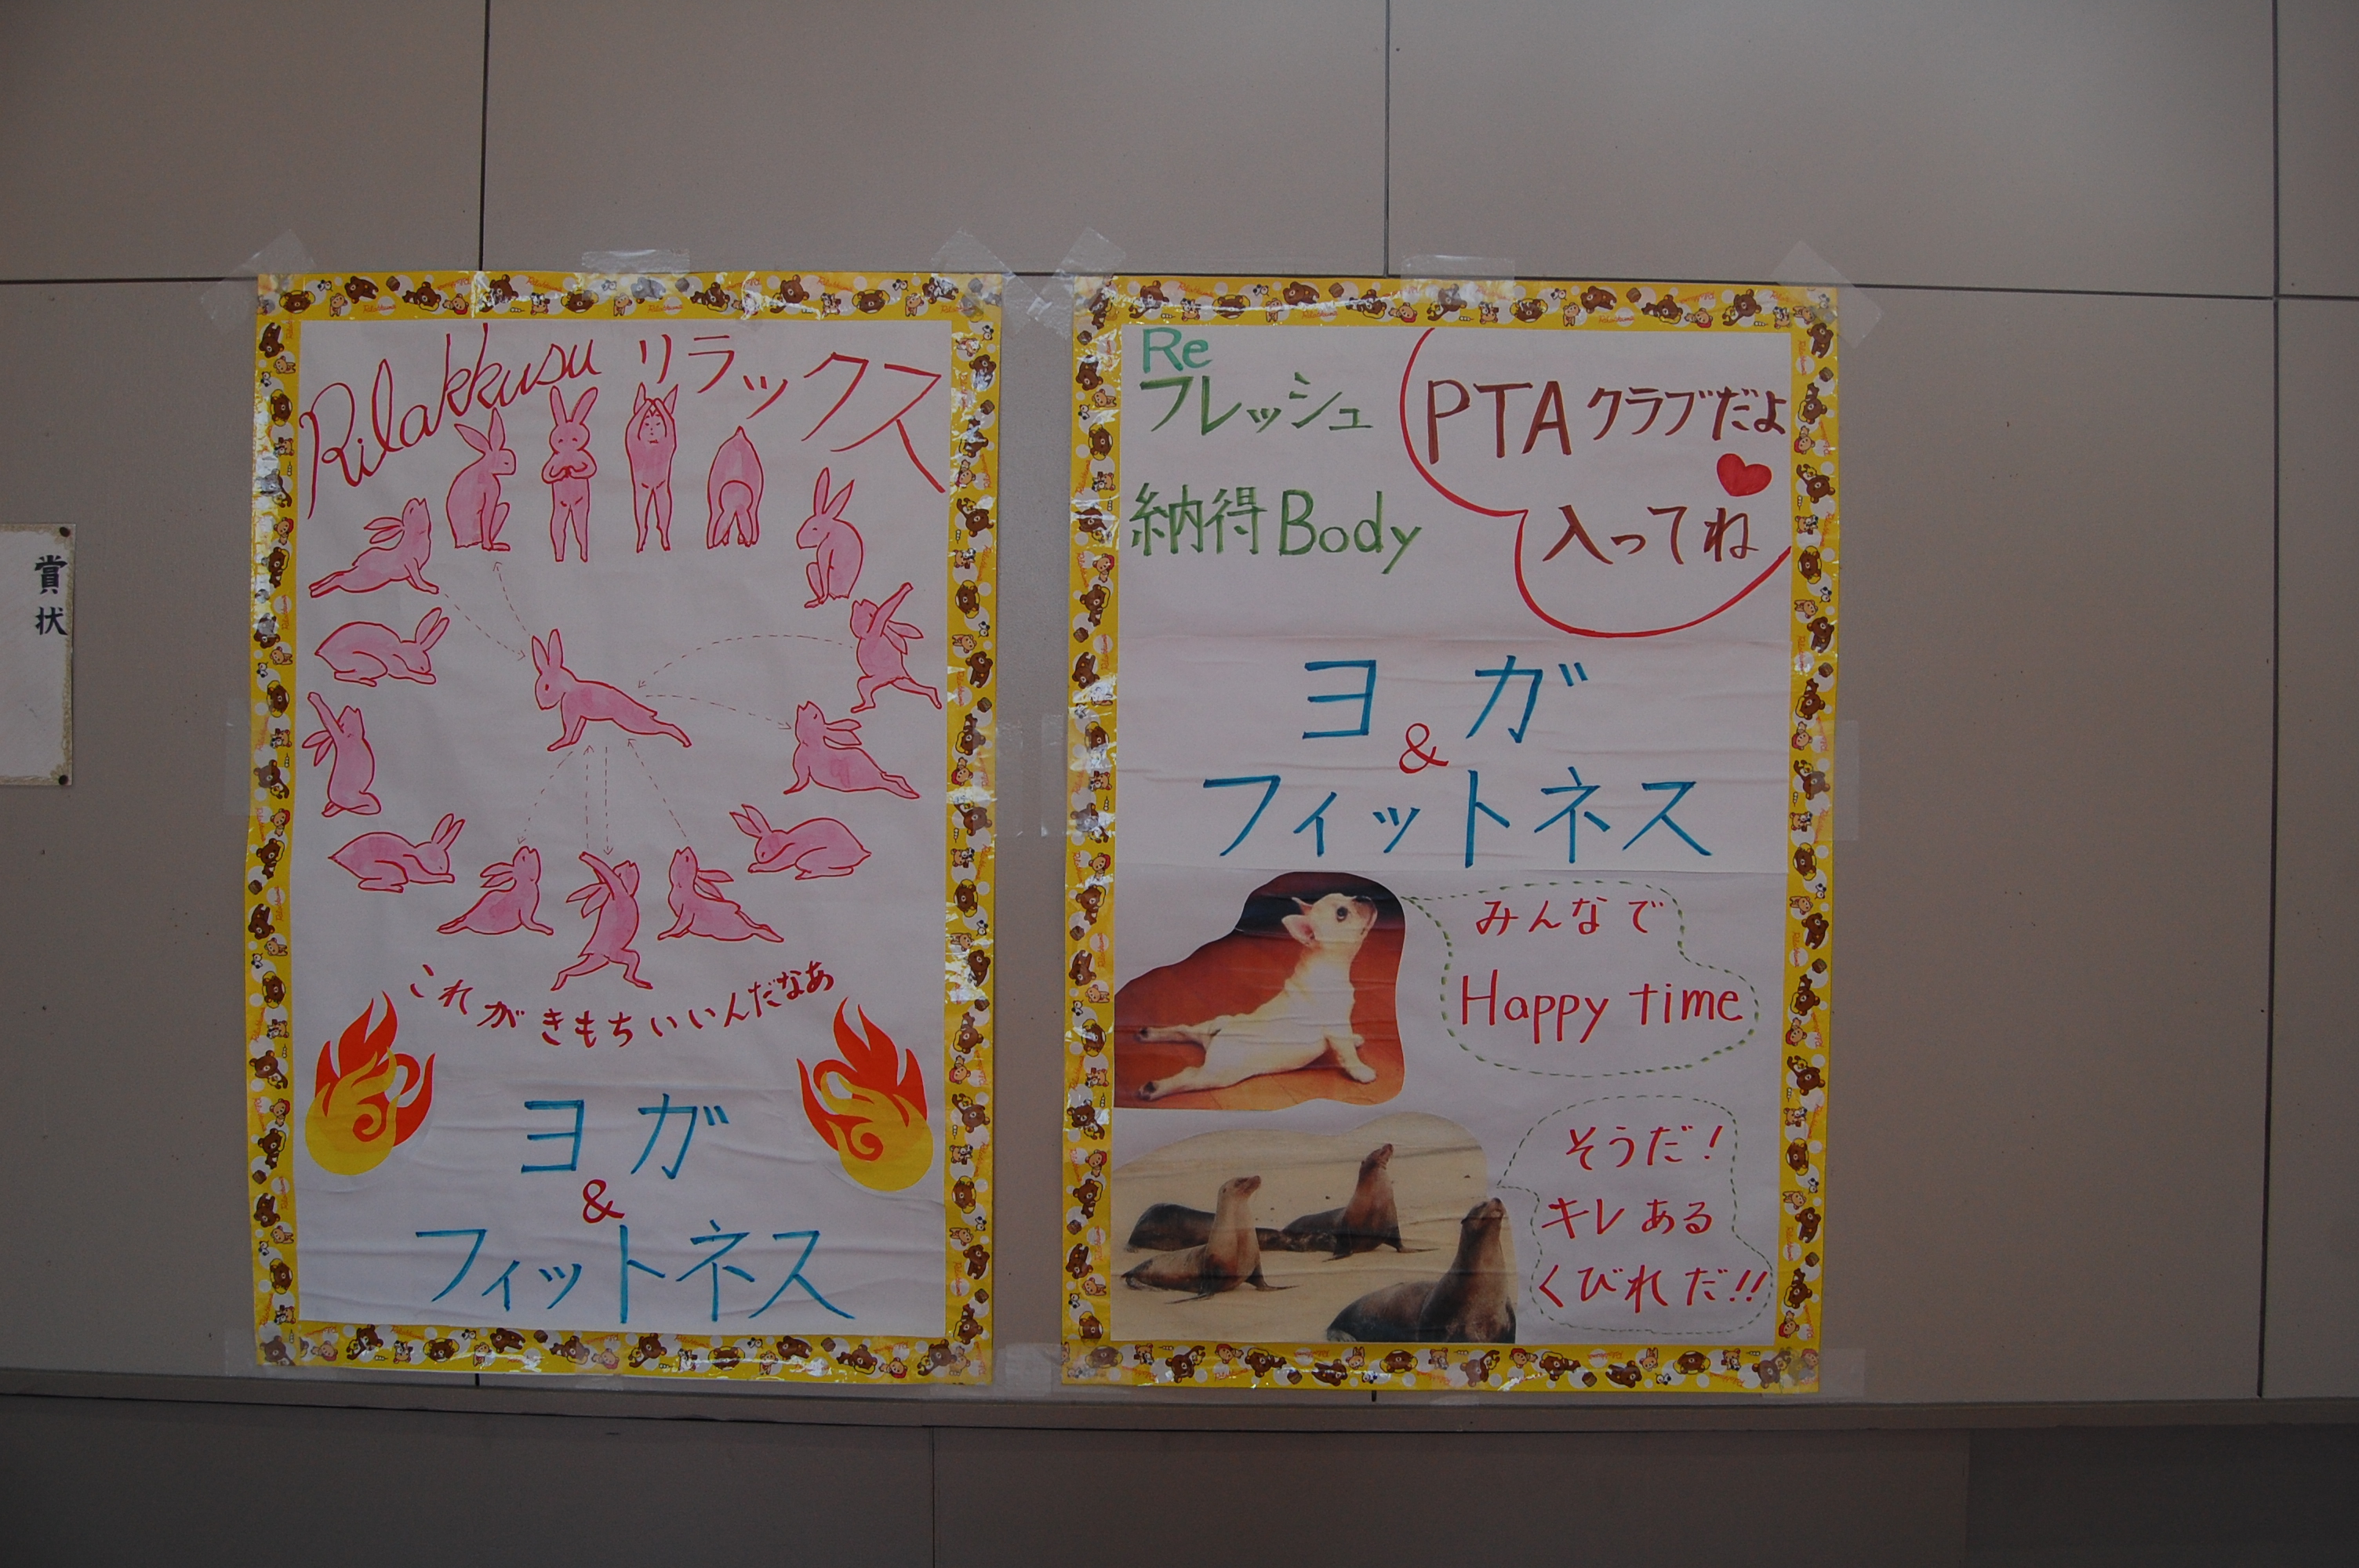 賞状
Rilakkusu リラックス
これがきもちいいんだなあ
ヨガ
&
フィットネス
Re
フレッシュ
納得Body
PTAクラブだよ
入ってね
ヨガ
&
フィットネス
みんなで
Happy time
そうだ!
キレある
くびれだ!!